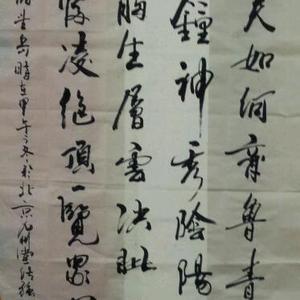 夫如何齊魯青
鐘神秀陰陽
胸生層雲決眦
當凌絕頂一覽眾
岳時在甲午冬於北京九州堂